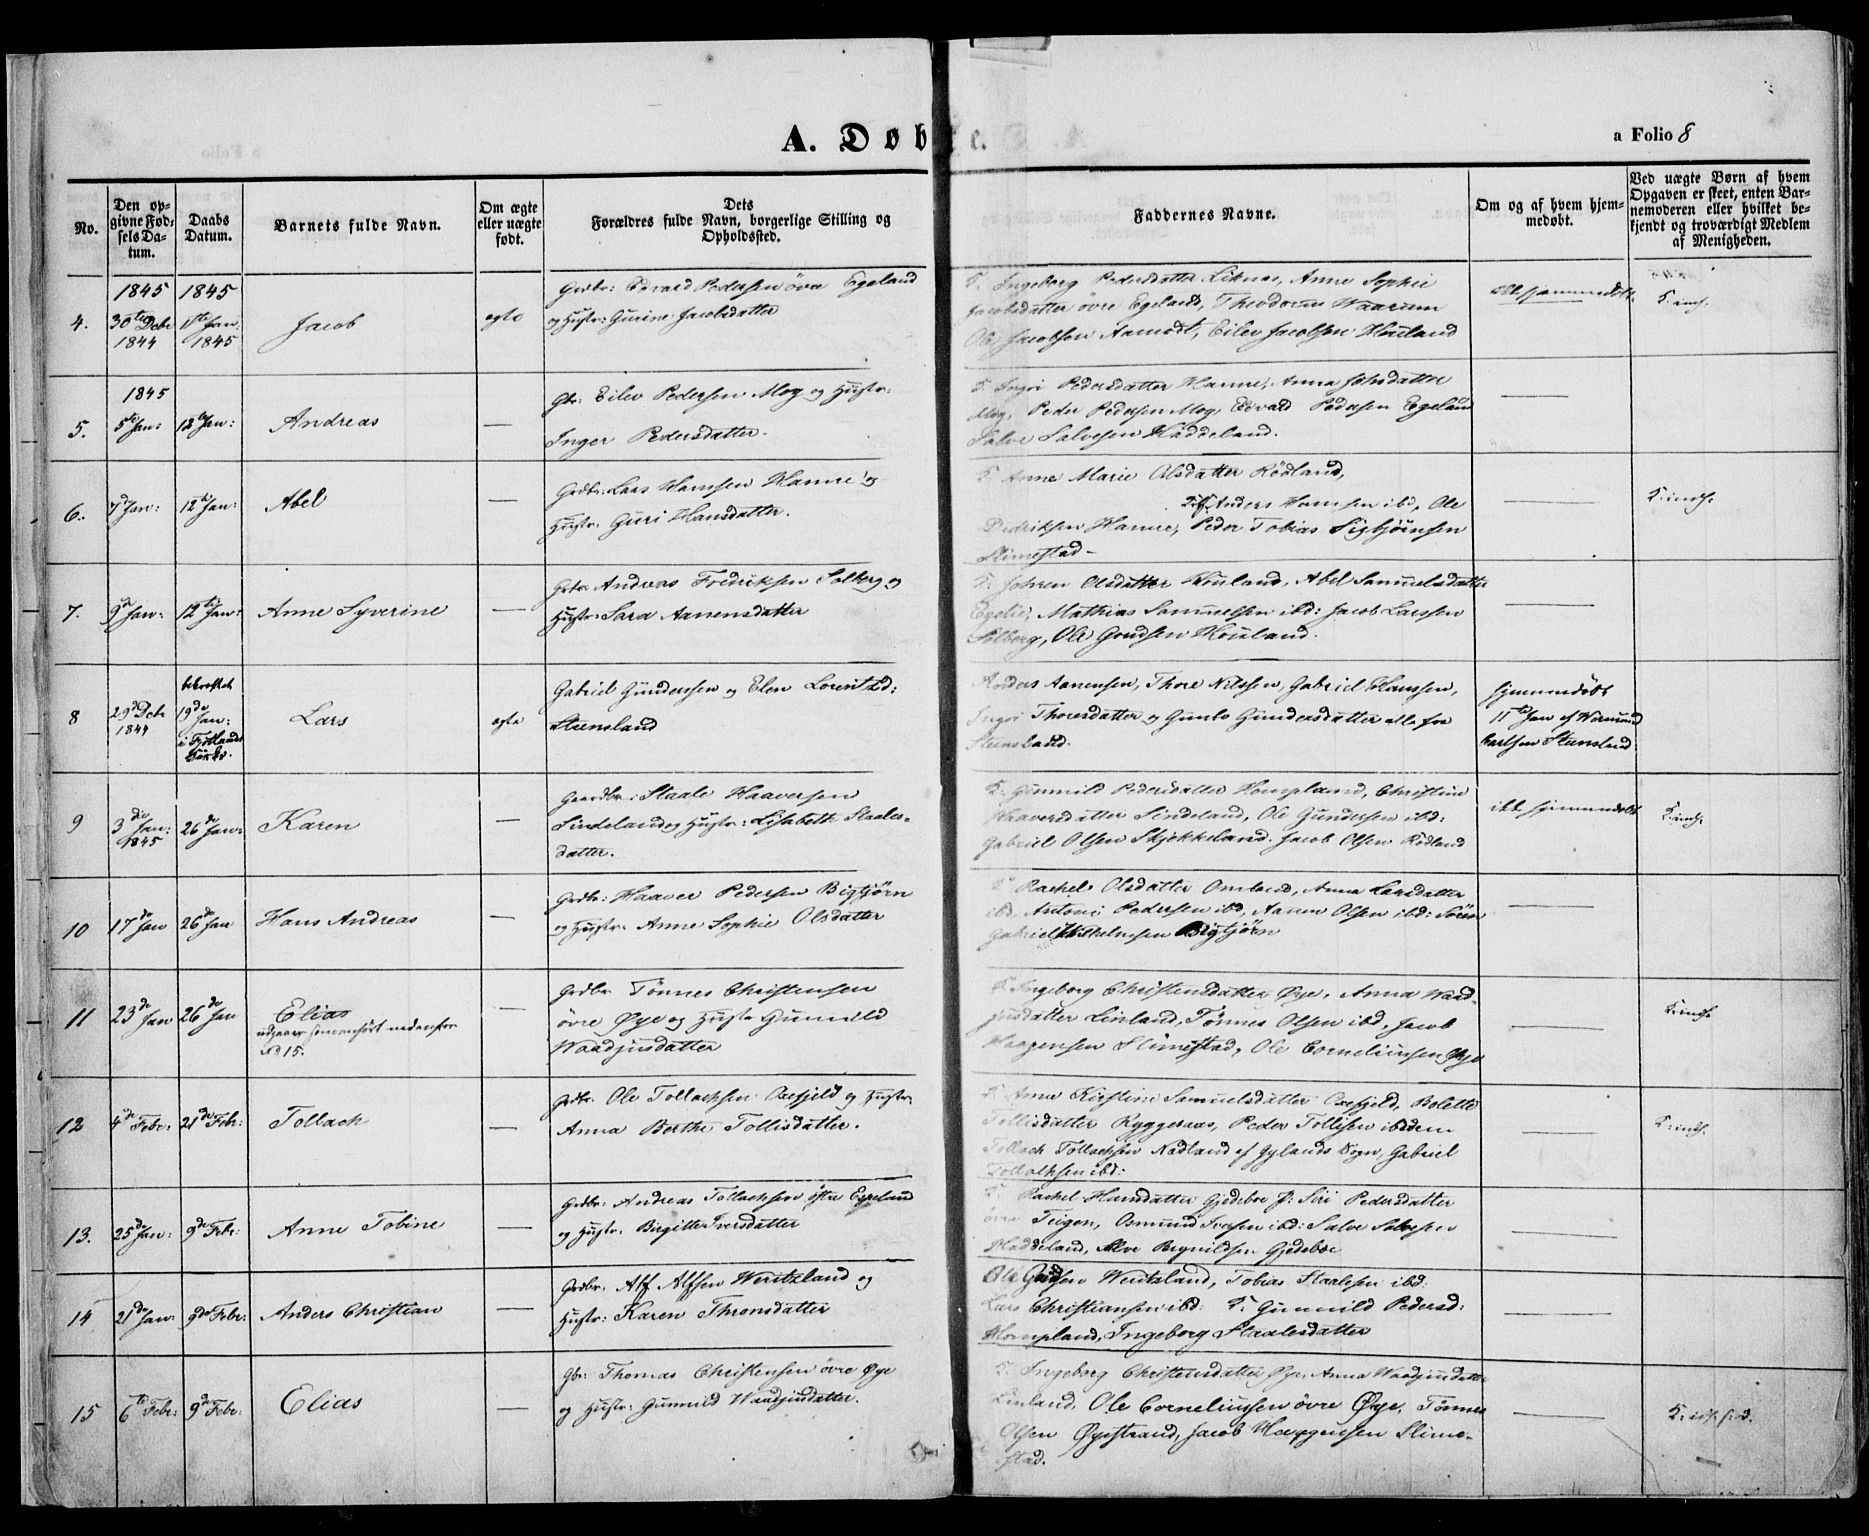 A. Døbte.
a Folio 8
No.
Den opgivne Fødsels Datum.
Daabs Datum.
Barnets fulde Navn.
Om ægte eller uægte født.
Dets Forældres fulde Navn, borgerlige Stilling og Opholdssted.
Faddernes Navne.
Om og af hvem hjemmedøbt.
Ved uægte Børn af hvem Opgaven er skeet, enten Barnemoderen eller hvilket bekjendt og troværdigt Medlem af Menigheden.
1845 1845
4. 30te Debr 1844
Jan: 1845
Jacob
ægte
Grdbr: Edvard Pedersen övre Egeland
og Hustr: Gurine Jacobsdatter
F. Ingeborg Pedersdatter Liknæs, Anne Sophie
Jacobsdatter övre Egeland, Theodorus Waarum
Ole Jacobsen Aamodt, Eilev Jacobsen Houland
1845
5. 5te Jan:
12te Jan:
Andreas
—
Gbr: Eilev Pedersen Moy og Hustr:
Inger Pedersdatter.
F. Ingri Pedersdatter Hamre, Anna
Moy, Peder Pedersen Moy, Edvard Pedersen Egeland
Salve Salvesen Haddeland.
6. 7d Jan:
12te Jan:
Abel
—
Grdbr: Lars Hansen Hamre og
Hustr: Guri Hansdatter.
F. Anne Marie Olsdatter Rödland,
Anders Hansen ibd, Ole
Hamre, Peder Tobias Sigbjörnsen
Slimestad –
7. 9de Jan:
12te Jan:
Anne Syverine
—
Andreas Fredriksen Solberg og
Hustr: Sara Aanensdatter
F. Olsdatter Houland, Abel Samuelsdatter
Egelie, Mathias Samuelsen ibd: Jacob Larssen
Solberg, Ole Houland.
8 29d Debr 1844
bekræftet
19de Jan:
i Fjotlands
Kirke.
Lars
ægte
Gabriel Gundersen og Elen Lorentsd:
Steensland
Anders Aanensen, Thore Nilssen, Gabriel Hanssen,
Ingri Thoresdatter og Gunlo Gundersdatter alle fra
Steensland.
hjemmedöbt
11te Jan af
Carlsen Steensland
9 3die Jan: 1845
26de Jan:
Karen
—
Gaardbr: Staale Haaversen
Sindeland og Hustr: Lisabeth Staales-
datter.
F. Gunnild Pedersdatter Hompland, Christine
Haaversdatter Sindeland, Ole Gundersen ibd:
Gabriel Olsen Skjekkeland. Jacob Olsen Rödland
ikke hjemmedöbt
10 17de Jan
26de Jan
Hans Andreas
—
Grdbr: Haaver Pedersen Bigtjörn
og Hustr: Anne Sophie Olsdatter
F. Rachel Olsdatter Omland, Anna Larsdatter
ibd, Antoni Pedersen ibd, Aanen Olsen ibd: Sören
Gabriel Bigtjörn
11 23de Jan
26de Jan
Elias
udgaaer som anført nedenfor
No 15.
—
Grdbr Tönnes Christensen
övre Øye og Hustr Gunnild
Waadjusdatter
F. Ingeborg Christensdatter Øye, Anna Waad-
jusdatter Linland, Tönnes Olsen ibd, Jacob
Haagensen Slimestad, Ole Corneliussen Øye
12 4de Febr:
21de Febr:
Tollach
—
Grdbr. Ole Tollachsen Oxefjeld og Hustr:
Anna Berthe Tollisdatter.
F. Anna Kirstine Samuelsdatter Oxefjeld, Bolette
Tollisdatter Ryggenæs, Peder Tollisen ibidem
Tollach Tollachsen Nedland af Gylands Sogn, Gabriel
Tollachsen ibd:
13. 25de Jan:
9de Febr:
Anne Tobine
—
Grdbr: Andreas Tollachsen östre Egeland
og Hustr: Birgitte Iversdatter
F. Rachel Hansdatter Gjedeboe p: Siri Pedersdatter
övre Teigen, Osmund Iversen ibd: Salve Salvesen
Haddeland, Alve Gjedeboe
14 21de Jan:
9de Febr:
Anders Christian
—
Grdbr. Alf Alfsen Weritzland og
Hustr: Karen Thronsdatter
Ole Weritzland, Tobias Staalesen ibd:
Lars Christiansen ibd: F. Gunnild Pedersd:
Hompland, Ingeborg Staalesdatter
15 6te Febr:
9de Febr:
Elias
—
Gbr: Thomas Christensen övre Øye
og Hustr: Gunnild Waadjusdatter.
F. Ingeborg Christensdatter Øye, Anna Waadjusdatter
Linland, Ole Corneliussen övre Øye, Tönnes
Olsen Øyestrand, Jacob Haagensen Slime-
stad.